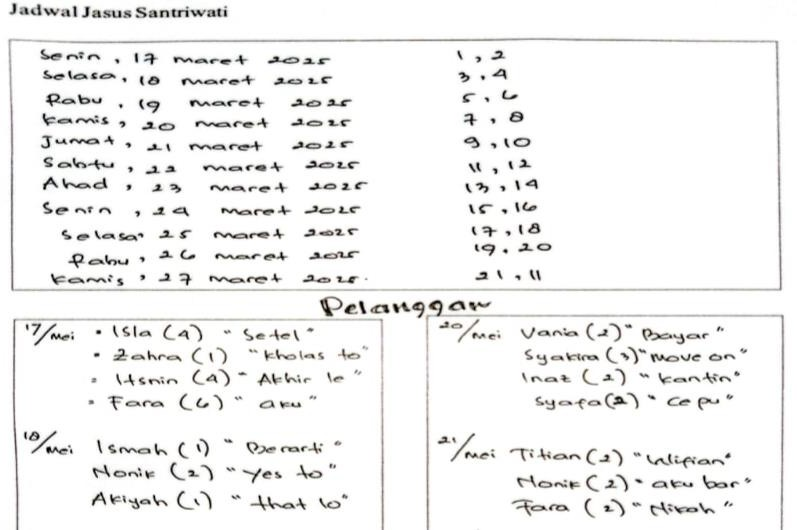 Jadwal Jasus Santriwati
Senin, 17 maret 2025 1, 2
Selasa, 18 maret 2025 3, 4
Rabu, 19 maret 2025 5, 6
Kamis, 20 maret 2025 7, 8
Jumat, 21 maret 2025 9, 10
Sabtu, 22 maret 2025 11, 12
Ahad, 23 maret 2025 13, 14
Senin, 24 maret 2025 15, 16
Selasa, 25 maret 2025 17, 18
Rabu, 26 maret 2025 19, 20
Kamis, 27 maret 2025. 21, 11
Pelanggar
17/Mei • Isla (4) "Setel"
• Zahra (1) "Kholas to"
• Itsnin (4) "Akhir le"
• Fara (6) "aku"
18/Mei Ismah (1) "Berarti"
Nonik (2) "Yes to"
Akiyah (1) "that lo"
20/Mei Vania (2) "Bayar"
Syakira (3) "move on"
Inaz (2) "kantin"
Syafa (2) "cepu"
21/Mei Titian (2)
Nonik (2) "aku bar"
Fara (2) "Nikah"